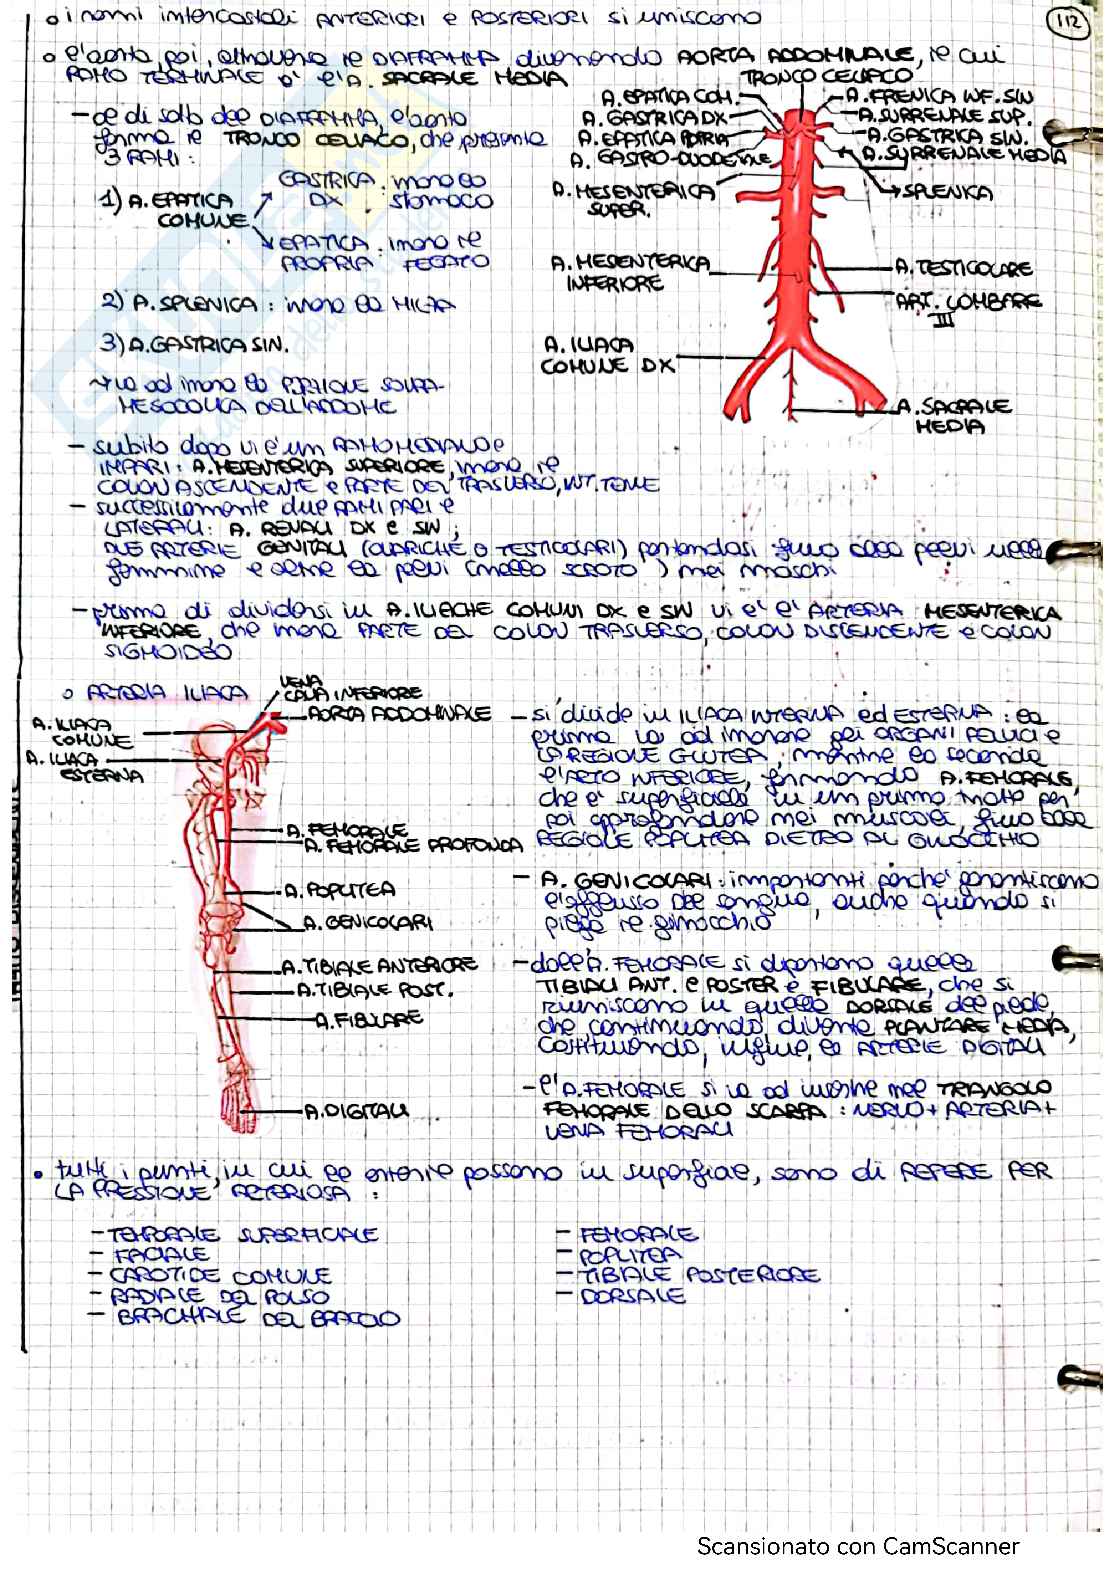 112
o i rami intercostali ANTERIORI e POSTERIORI si uniscono
o l'aorta, poi, attraversa il DIAFRAMMA divenendo AORTA ADDOMINALE, il cui
RAMO TERMINALE è l'A. SACRALE MEDIA
- al di sotto del DIAFRAMMA, l'aorta
forma il TRONCO CELIACO, che presenta
3 RAMI:
1) A. EPATICA
COMUNE
GASTRICA: irrora lo
DX stomaco
EPATICA: irrora il
PROPRIA FEGATO
2) A. SPLENICA: irrora la MILZA
3) A. GASTRICA SIN.
va ad irrorare la PORZIONE SOVRA-
MESOCOLICA DELL'ADDOME
TRONCO CELIACO
A. EPATICA COM.
A. GASTRICA DX
A. EPATICA PROPRIA
A. GASTRO-DUODENALE
A. MESENTERICA
SUPER.
A. MESENTERICA
INFERIORE
A. ILIACA
COMUNE DX
A. FRENICA INF. SIN
A. SURRENALE SUP.
A. GASTRICA SIN.
A. SURRENALE MEDIA
SPLENICA
A. TESTICOLARE
ART. LOMBARE
III
A. SACRALE
MEDIA
- subito dopo vi è un RAMO MEDIANO e
IMPARI: A. MESENTERICA SUPERIORE, irrora il
COLON ASCENDENTE e PARTE DEL TRASVERSO, INT. TENUE
- successivamente due RAMI PARI e
LATERALI: A. RENALI DX e SIN;
DUE ARTERIE GENITALI (OVARICHE O TESTICOLARI) portandosi fino alla pelvi nelle
femmine e oltre la pelvi (nello SCROTO) nei maschi
- prima di dividersi in A. ILIACHE COMUNI DX e SIN vi è l'ARTERIA MESENTERICA
INFERIORE, che irrora PARTE DEL COLON TRASVERSO, COLON DISCENDENTE e COLON
SIGMOIDEO
o ARTERIA ILIACA
VENA
CAVA INFERIORE
AORTA ADDOMINALE
A. ILIACA
COMUNE
A. ILIACA
ESTERNA
A. FEMORALE
A. FEMORALE PROFONDA
A. POPLITEA
A. GENICOLARI
A. TIBIALE ANTERIORE
A. TIBIALE POST.
A. FIBULARE
A. DIGITALI
- si divide in ILIACA INTERNA ed ESTERNA: la
prima va ad irrorare gli ORGANI PELVICI e
LA REGIONE GLUTEA, mentre la seconda
l'ARTO INFERIORE, formando A. FEMORALE,
che è superficiale in un primo tratto per
poi approfondarsi nei muscoli, fino alla
REGIONE POPLITEA DIETRO AL GINOCCHIO
- A. GENICOLARI: importanti perché garantiscono
l'afflusso del sangue, anche quando si
piega il ginocchio
- dall'A. FEMORALE si dipartono quelle
TIBIALI ANT. e POSTER e FIBULARE, che si
riuniscono in quella DORSALE del piede,
che continuando, diventa PLANTARE MEDIA,
costituendo, infine, le ARTERIE DIGITALI
- l'A. FEMORALE si va ad inserire nel TRIANGOLO
FEMORALE DELLO SCARPA: NERVO + ARTERIA +
VENA FEMORALI
• tutti i punti, in cui le arterie passano in superficie, sono di REPERE PER
LA PRESSIONE ARTERIOSA:
- TEMPORALE SUPERFICIALE
- FACIALE
- CAROTIDE COMUNE
- RADIALE DEL POLSO
- BRACHIALE DEL BRACCIO
- FEMORALE
- POPLITEA
- TIBIALE POSTERIORE
- DORSALE
Scansionato con CamScanner